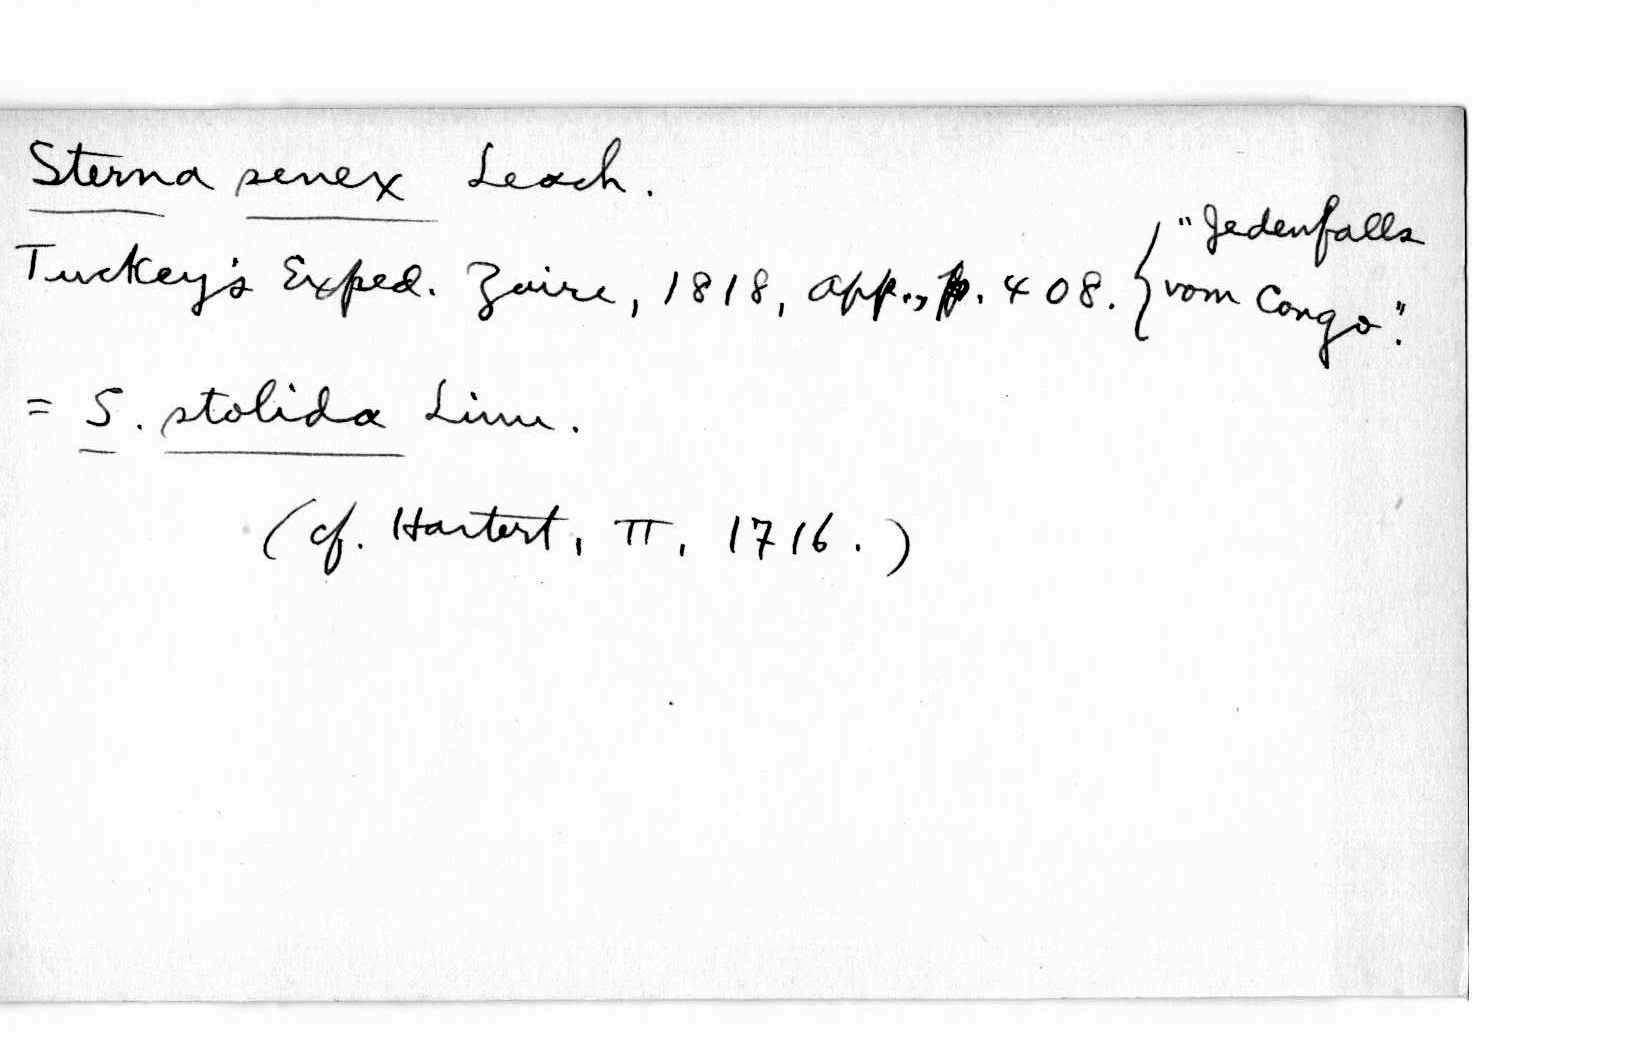 Sterna senex Leach.
Tuckey's Exped. Zaire, 1818, app., p. 408. { "Jedenfalls
vom Congo".
= S. stolida Linn.
(cf. Hartert, II, 1716.)